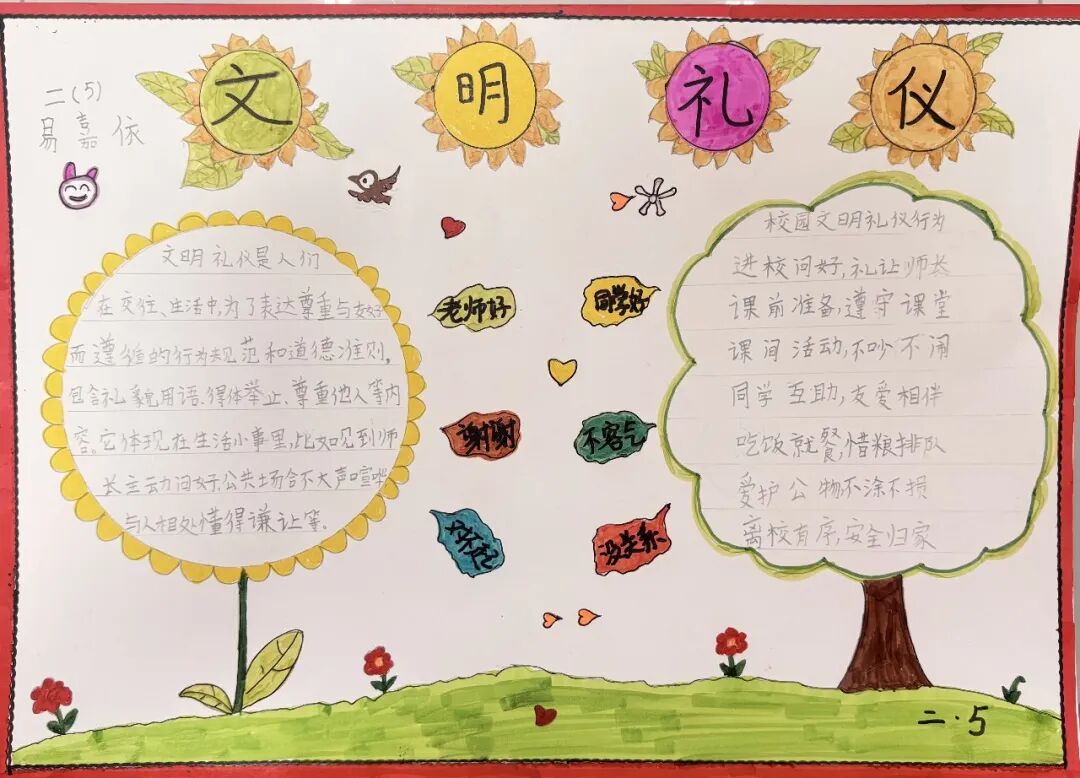 文明礼仪
二(5)
易嘉依
文明礼仪是人们
在交往、生活中,为了表达尊重与友好
而遵循的行为规范和道德准则。
包含礼貌用语、得体举止、尊重他人等内
容。它体现在生活小事里,比如见到师
长主动问好,公共场合不大声喧哗
与人相处懂得谦让等。
老师好
同学好
谢谢
不客气
没关系
校园文明礼仪行为
进校问好,礼让师长
课前准备,遵守课堂
课间活动,不吵不闹
同学互助,友爱相伴
吃饭就餐,惜粮排队
爱护公物不涂不损
离校有序,安全归家
二.5